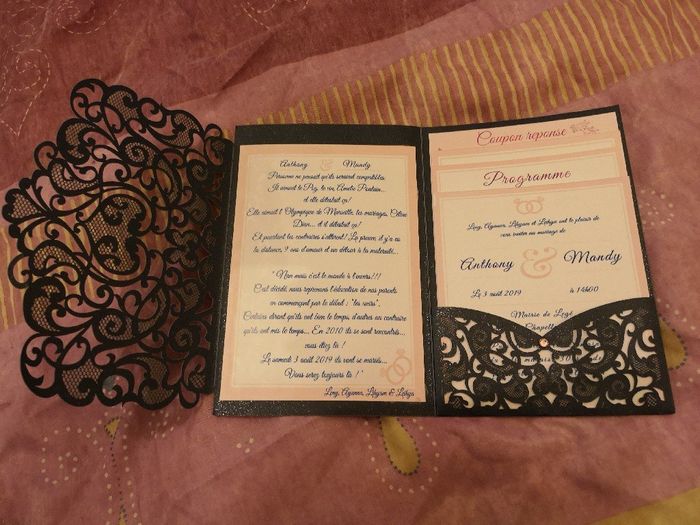 Anthony & Mandy
Personne ne pensait qu'ils seraient compatibles.
Il aimait le Psg, le vin, Amelo Pantain...
et elle détestait ça!
Elle aimait l'Olympique de Marseille, les mariages, Céline
Dion... et il détestait ça!
Et pourtant les contraires s'attirent! La preuve, il y'a eu
la distance, 9 ans d'amour et un détour à la maternité...
"Non mais c'est le monde à l'envers!!!
C'est décidé, nous reprenons l'éducation de nos parents
en commençant par le début : "les noirs".
Certains diront qu'ils ont bien le temps, d'autres au contraire
qu'ils ont mis le temps... En 2010 ils se sont rencontrés...
vous étiez là !
Le samedi 3 août 2019 ils vont se marier...
Vous serez toujours là !"
Lény, Ayanna, Lihyam &
Coupon reponse
Programme
Lény, Ayanna, Lihyam et ont le plaisir de
vous inviter au mariage de
Anthony & Mandy
Le 3 août 2019 à 14h00
Mairie de Legé
Chapelle